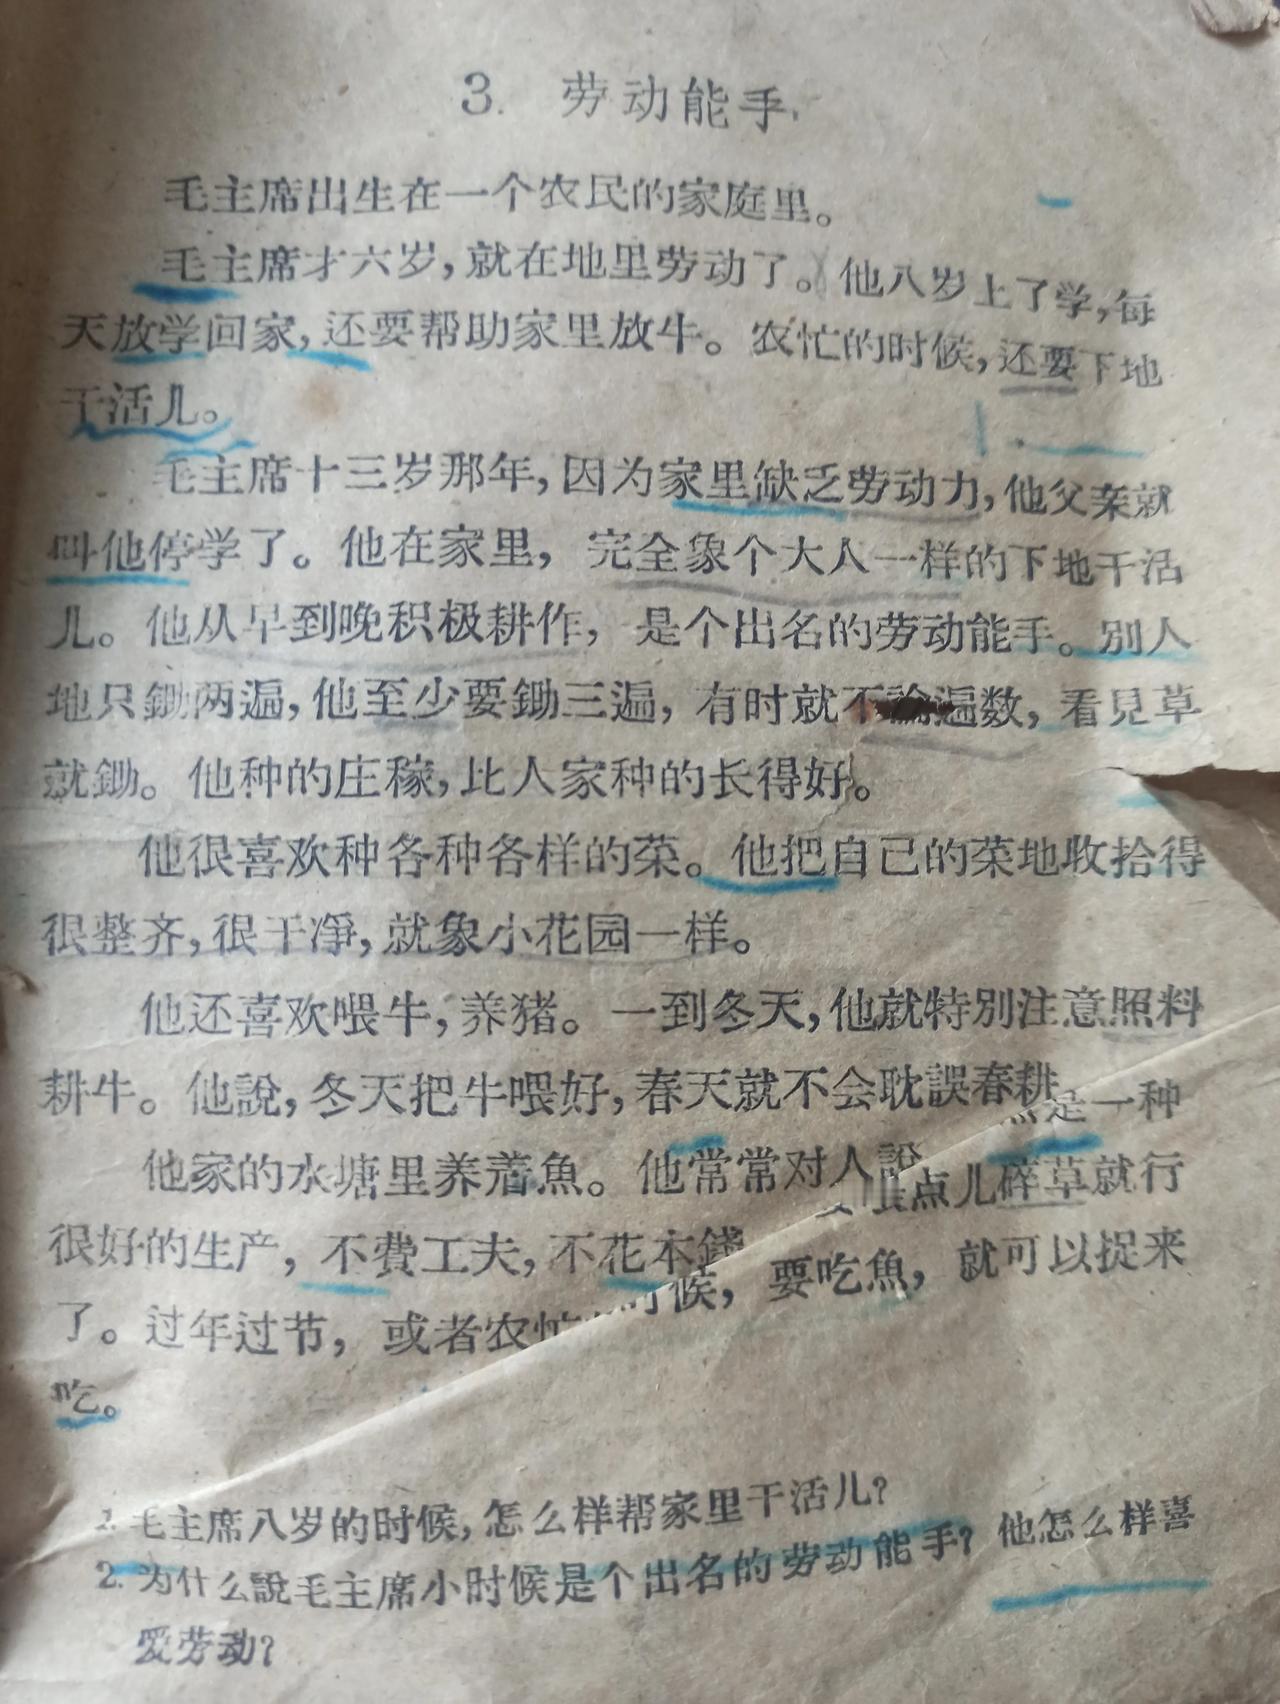 3. 劳动能手
毛主席出生在一个农民的家庭里。
毛主席才六岁，就在地里劳动了。他八岁上了学，每
天放学回家，还要帮助家里放牛。农忙的时候，还要下地
干活儿。
毛主席十三岁那年，因为家里缺乏劳动力，他父亲就
叫他停学了。他在家里，完全象个大人一样的下地干活
儿。他从早到晚积极耕作，是个出名的劳动能手。别人
地只鋤两遍，他至少要鋤三遍，有时就不論遍数，看見草
就鋤。他种的庄稼，比人家种的长得好。
他很喜欢种各种各样的菜。他把自己的菜地收拾得
很整齐，很干淨，就象小花园一样。
他还喜欢喂牛，养猪。一到冬天，他就特别注意照料
耕牛。他說，冬天把牛喂好，春天就不会耽誤春耕
他家的水塘里养着魚。他常常对人說 是一种
很好的生产，不費工夫，不花本錢 点儿碎草就行
了。过年过节，或者农忙 时候，要吃魚，就可以捉来
吃。
1. 毛主席八岁的时候，怎么样帮家里干活儿？
2. 为什么說毛主席小时候是个出名的劳动能手？他怎么样喜
爱劳动？